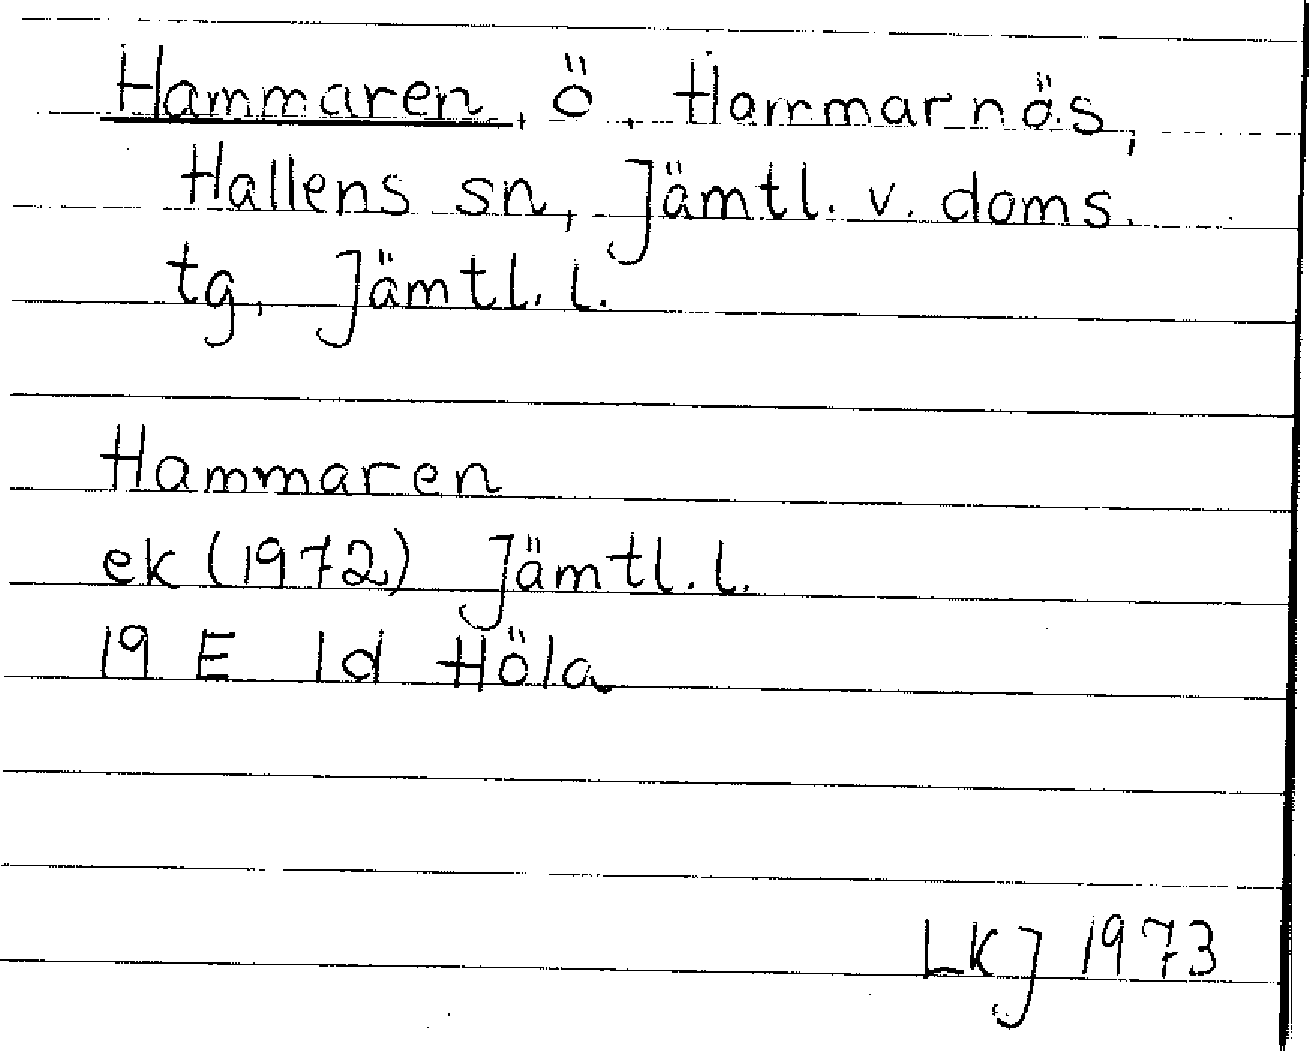 Hammaren, ö, Hammarnäs,
Hallens sn, Jämtl. v. doms.
tg, Jämtl. l.
Hammaren
ek (1972) Jämtl. l.
19 E 1d Höla
LKJ 1973